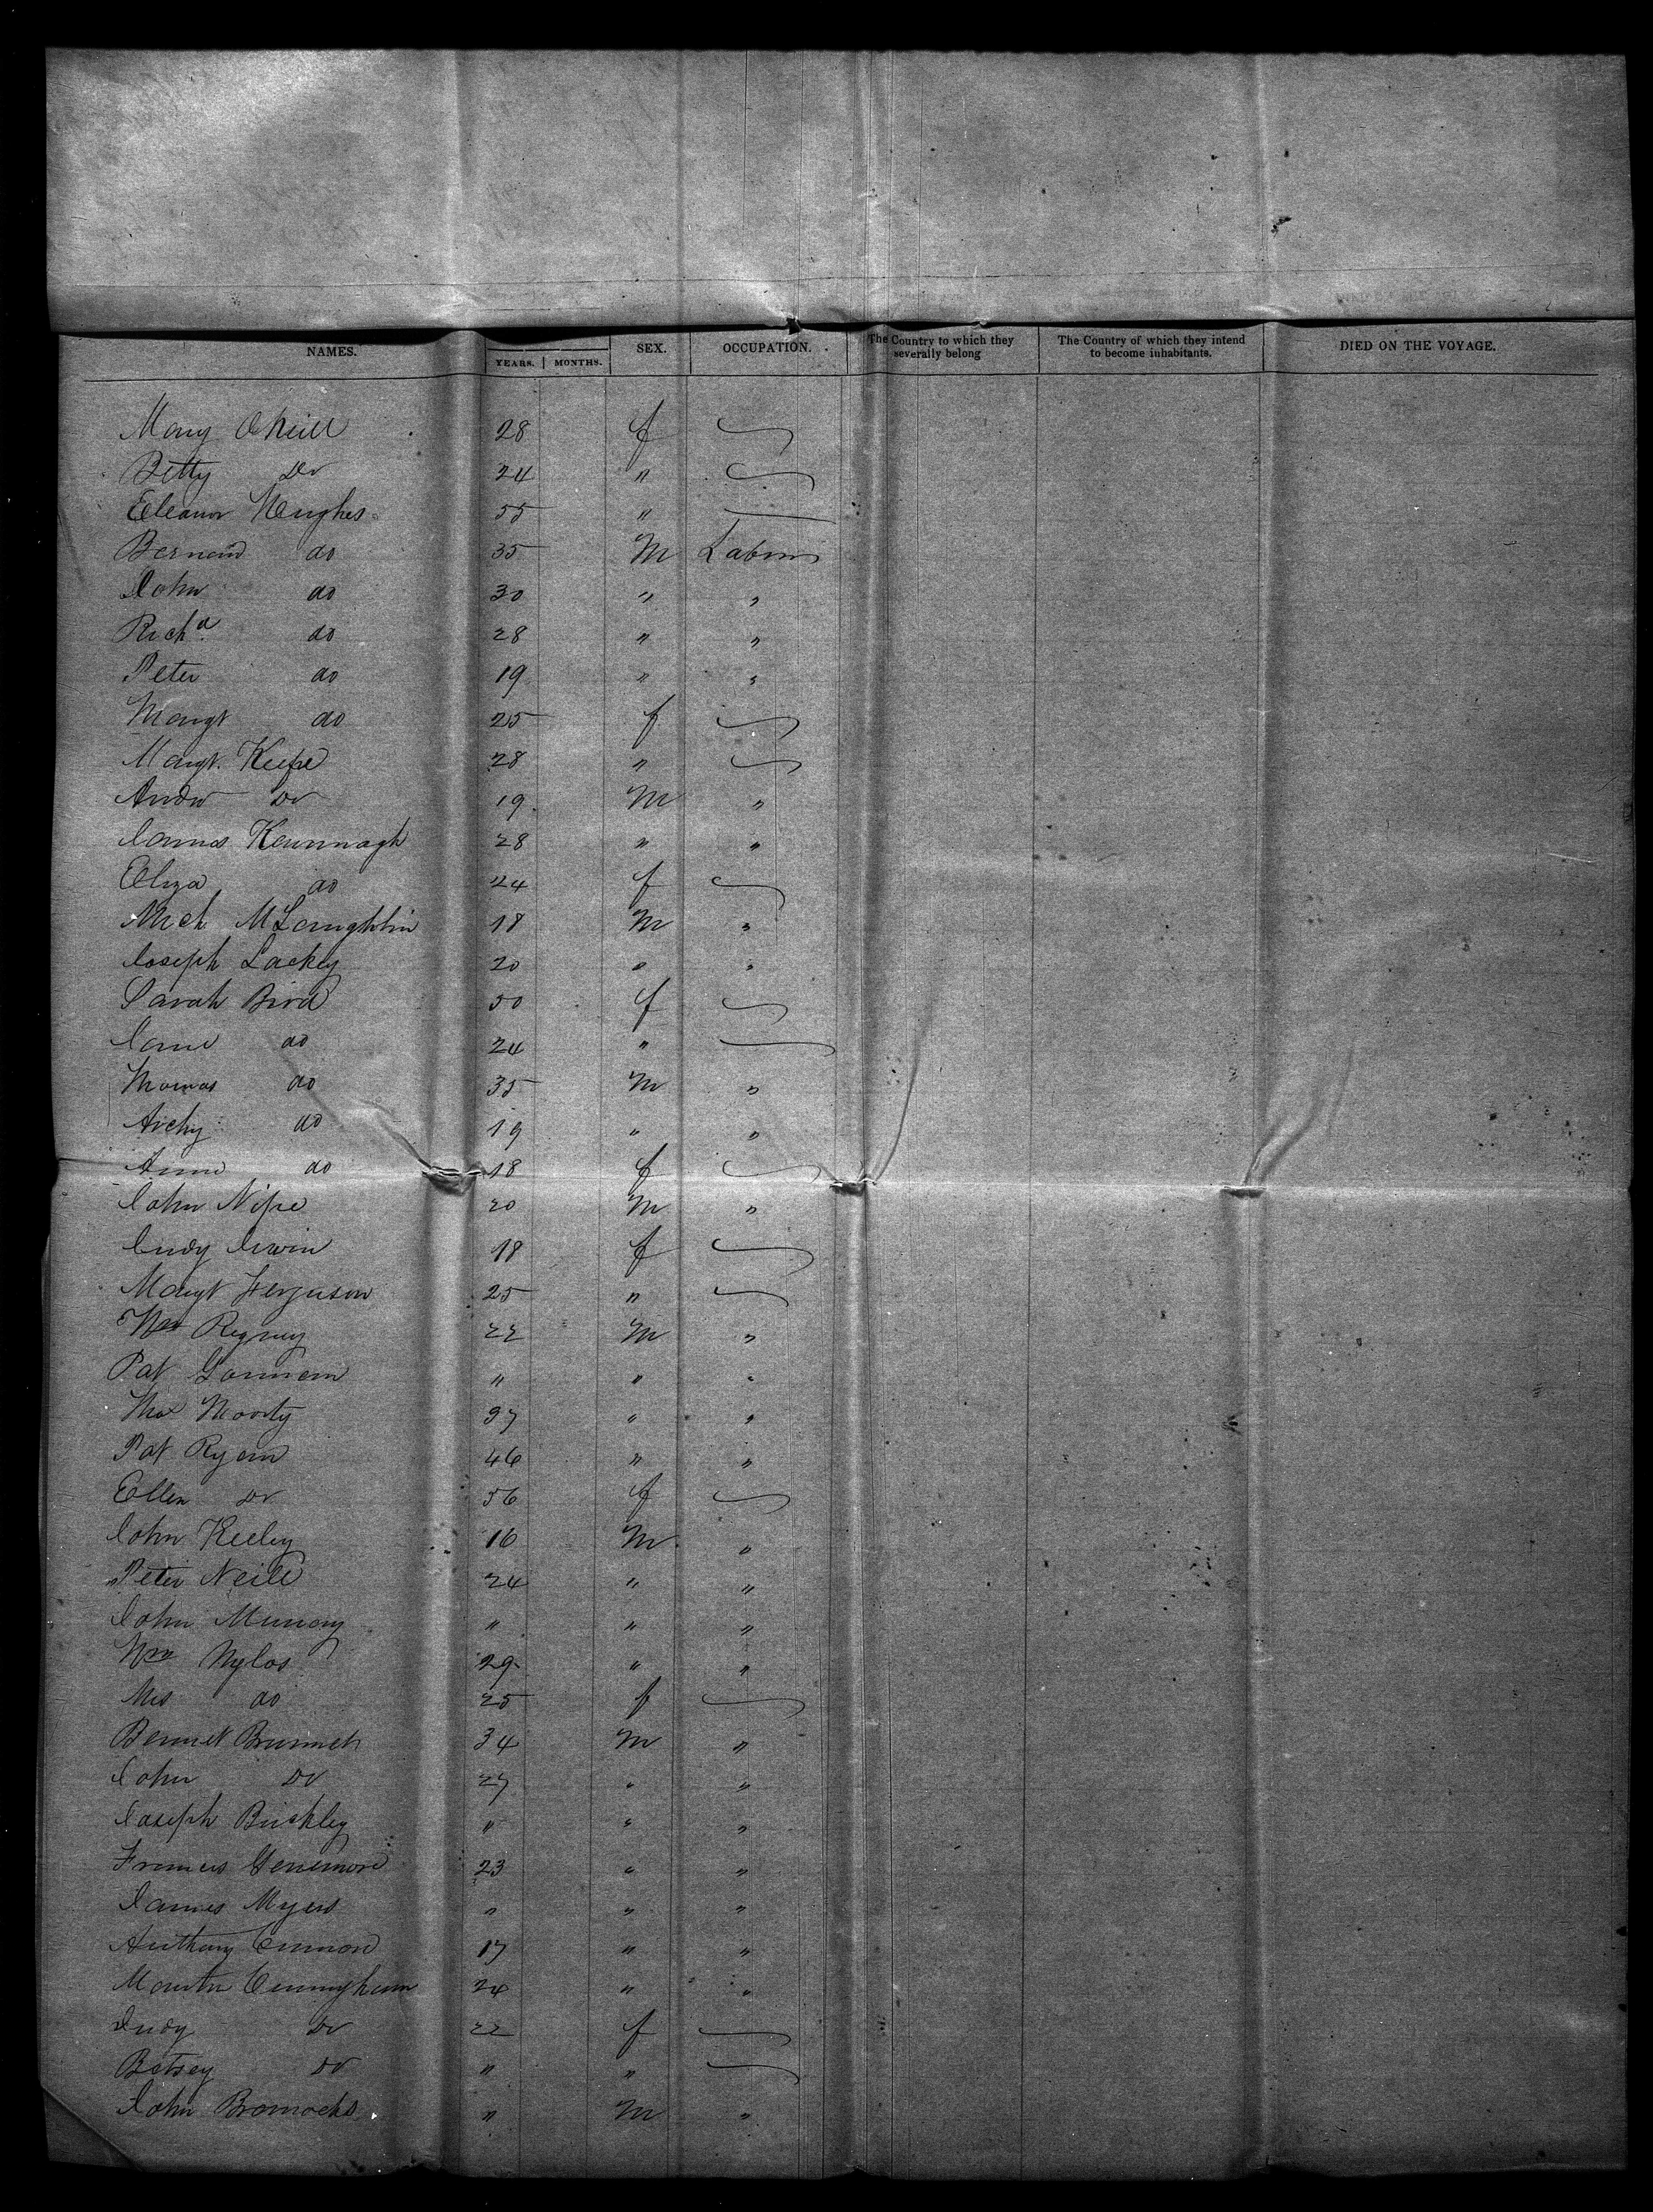 NAMES. YEARS. MONTHS. SEX. OCCUPATION. The Country to which they severally belong The Country of which they intend to become inhabitants. DIED ON THE VOYAGE.
Mary ONeill 28 f
Betty Do 24 "
Eleanor Hughes 55 "
Bernard do 35 M Labour
John do 30 " "
Richd. do 28 " "
Peter do 19 " "
Margt do 25 f
Margt. Keefe 28 "
Andw Do 19 M "
James Kavannagh 28 " "
Eliza do 24 f
Mich McLaughlin 18 M "
Joseph Lackey 20 " "
Sarah Bird 50 f
Jane do 24 "
Thomas do 35 M "
Archy do 19 " "
Anne do 18 f
John Nipe 20 M "
Judy Irwin 18 f
Margt Ferguson 25 "
Regney 22 M "
Pat " " "
Thos Moorty 37 " "
Pat Ryan 46 " "
Ellen Do 56 f
John Keeley 16 M "
Peter Neill 24 " "
John Murray " " "
Wm Nylos 29 " "
Mrs do 25 f
Bennet 34 M "
John Do 27 " "
Joseph Buckley " " "
Francis 23 " "
James Myers " " "
Anthony 17 " "
Martin Cunningham 24 " "
Judy Do 22 f
Betsey Do " "
John " M "